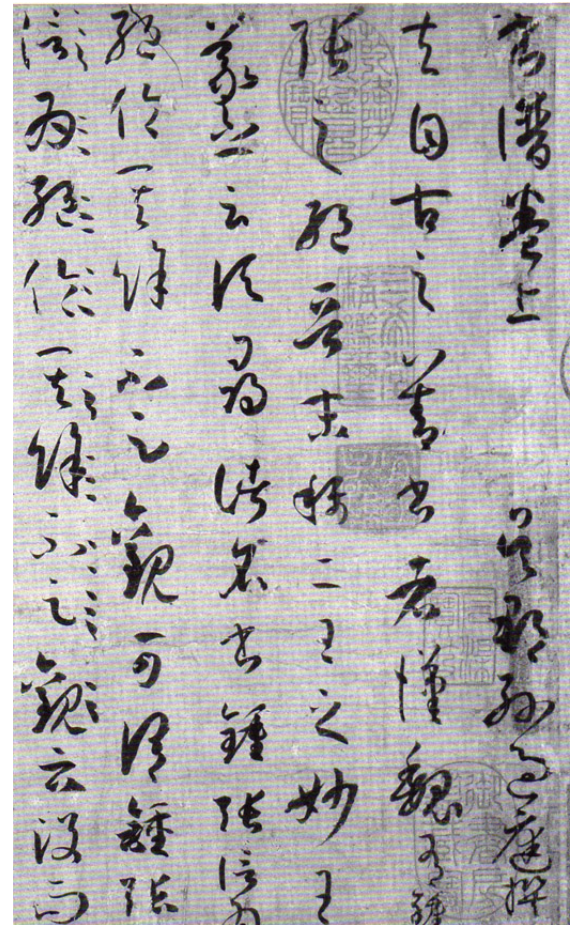 書譜卷上 吳郡孫過庭撰
夫自古之善書者漢魏有鍾
張之絕晉末稱二王之妙王
羲之云頃尋諸名書鍾張信為
絕倫其餘不足觀可謂鍾張
信為絕倫其餘不足觀云沒而
乾隆御覽之寶
三希堂精鑑璽
宜子孫